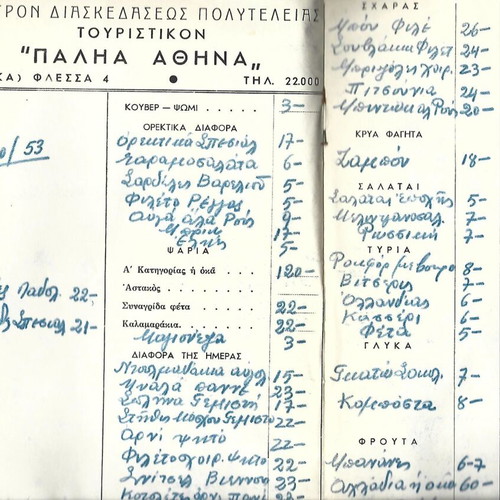 ΤΡΟΝ ΔΙΑΣΚΕΔΑΣΕΩΣ ΠΟΛΥΤΕΛΕΙΑΣ
ΤΟΥΡΙΣΤΙΚΟΝ
"ΠΑΛΗΑ ΑΘΗΝΑ"
ΚΑ) ΦΛΕΣΣΑ 4 • ΤΗΛ. 22.000
/53
22-
Σπεσιάλ 21-
ΚΟΥΒΕΡ - ΨΩΜΙ . . . . 3-
ΟΡΕΚΤΙΚΑ ΔΙΑΦΟΡΑ
Ορεκτικά Σπεσιάλ 17-
Ταραμοσαλάτα 6-
Σαρδέλες Βαρελιού 5-
Φιλέτο Ρέγγας 5-
Αυγά αλά Ρους 9-
Μπρικ 17-
Ελιές 5-
ΨΑΡΙΑ
Α' Κατηγορίας ἡ ὀκᾶ . . . . 120-
Ἀστακὸς . . . . . . .
Συναγρίδα φέτα . . . . 22-
Καλαμαράκια. . . . . . 22-
Μαγιονέζα 3-
ΔΙΑΦΟΡΑ ΤΗΣ ΗΜΕΡΑΣ
Ντολμαδάκια 15-
Μυαλά πανέ 23-
Γεμιστή 17-
Στήθος Μόσχου Γεμιστό 22-
Αρνί ψητό 22-
Φιλέτο χοιρ. ψητό 22-
Σνίτσελ Βιεννουά 23-
ΣΧΑΡΑΣ
Μπόν Φιλέ 26-
Σουβλάκια Φιλέτ 24-
Μπριζόλες χοιρ. 23-
Πιτσούνια 24-
20-
ΚΡΥΑ ΦΑΓΗΤΑ
Ζαμπόν 18-
ΣΑΛΑΤΑΙ
Σαλάται εποχής 5-
Μελιτζανοσαλ. 7-
Ρωσσική 7-
ΤΥΡΙΑ
Ροκφόρ με βούτυρο 8-
7-
Ολλανδίας 6-
Κασσέρι 6-
Φέτα 5-
ΓΛΥΚΑ
Γκατώ Σοκολ. 7-
Κομπόστα 8-
ΦΡΟΥΤΑ
Μπανάνες 6-7
Αχλάδια ἡ οκά 60-